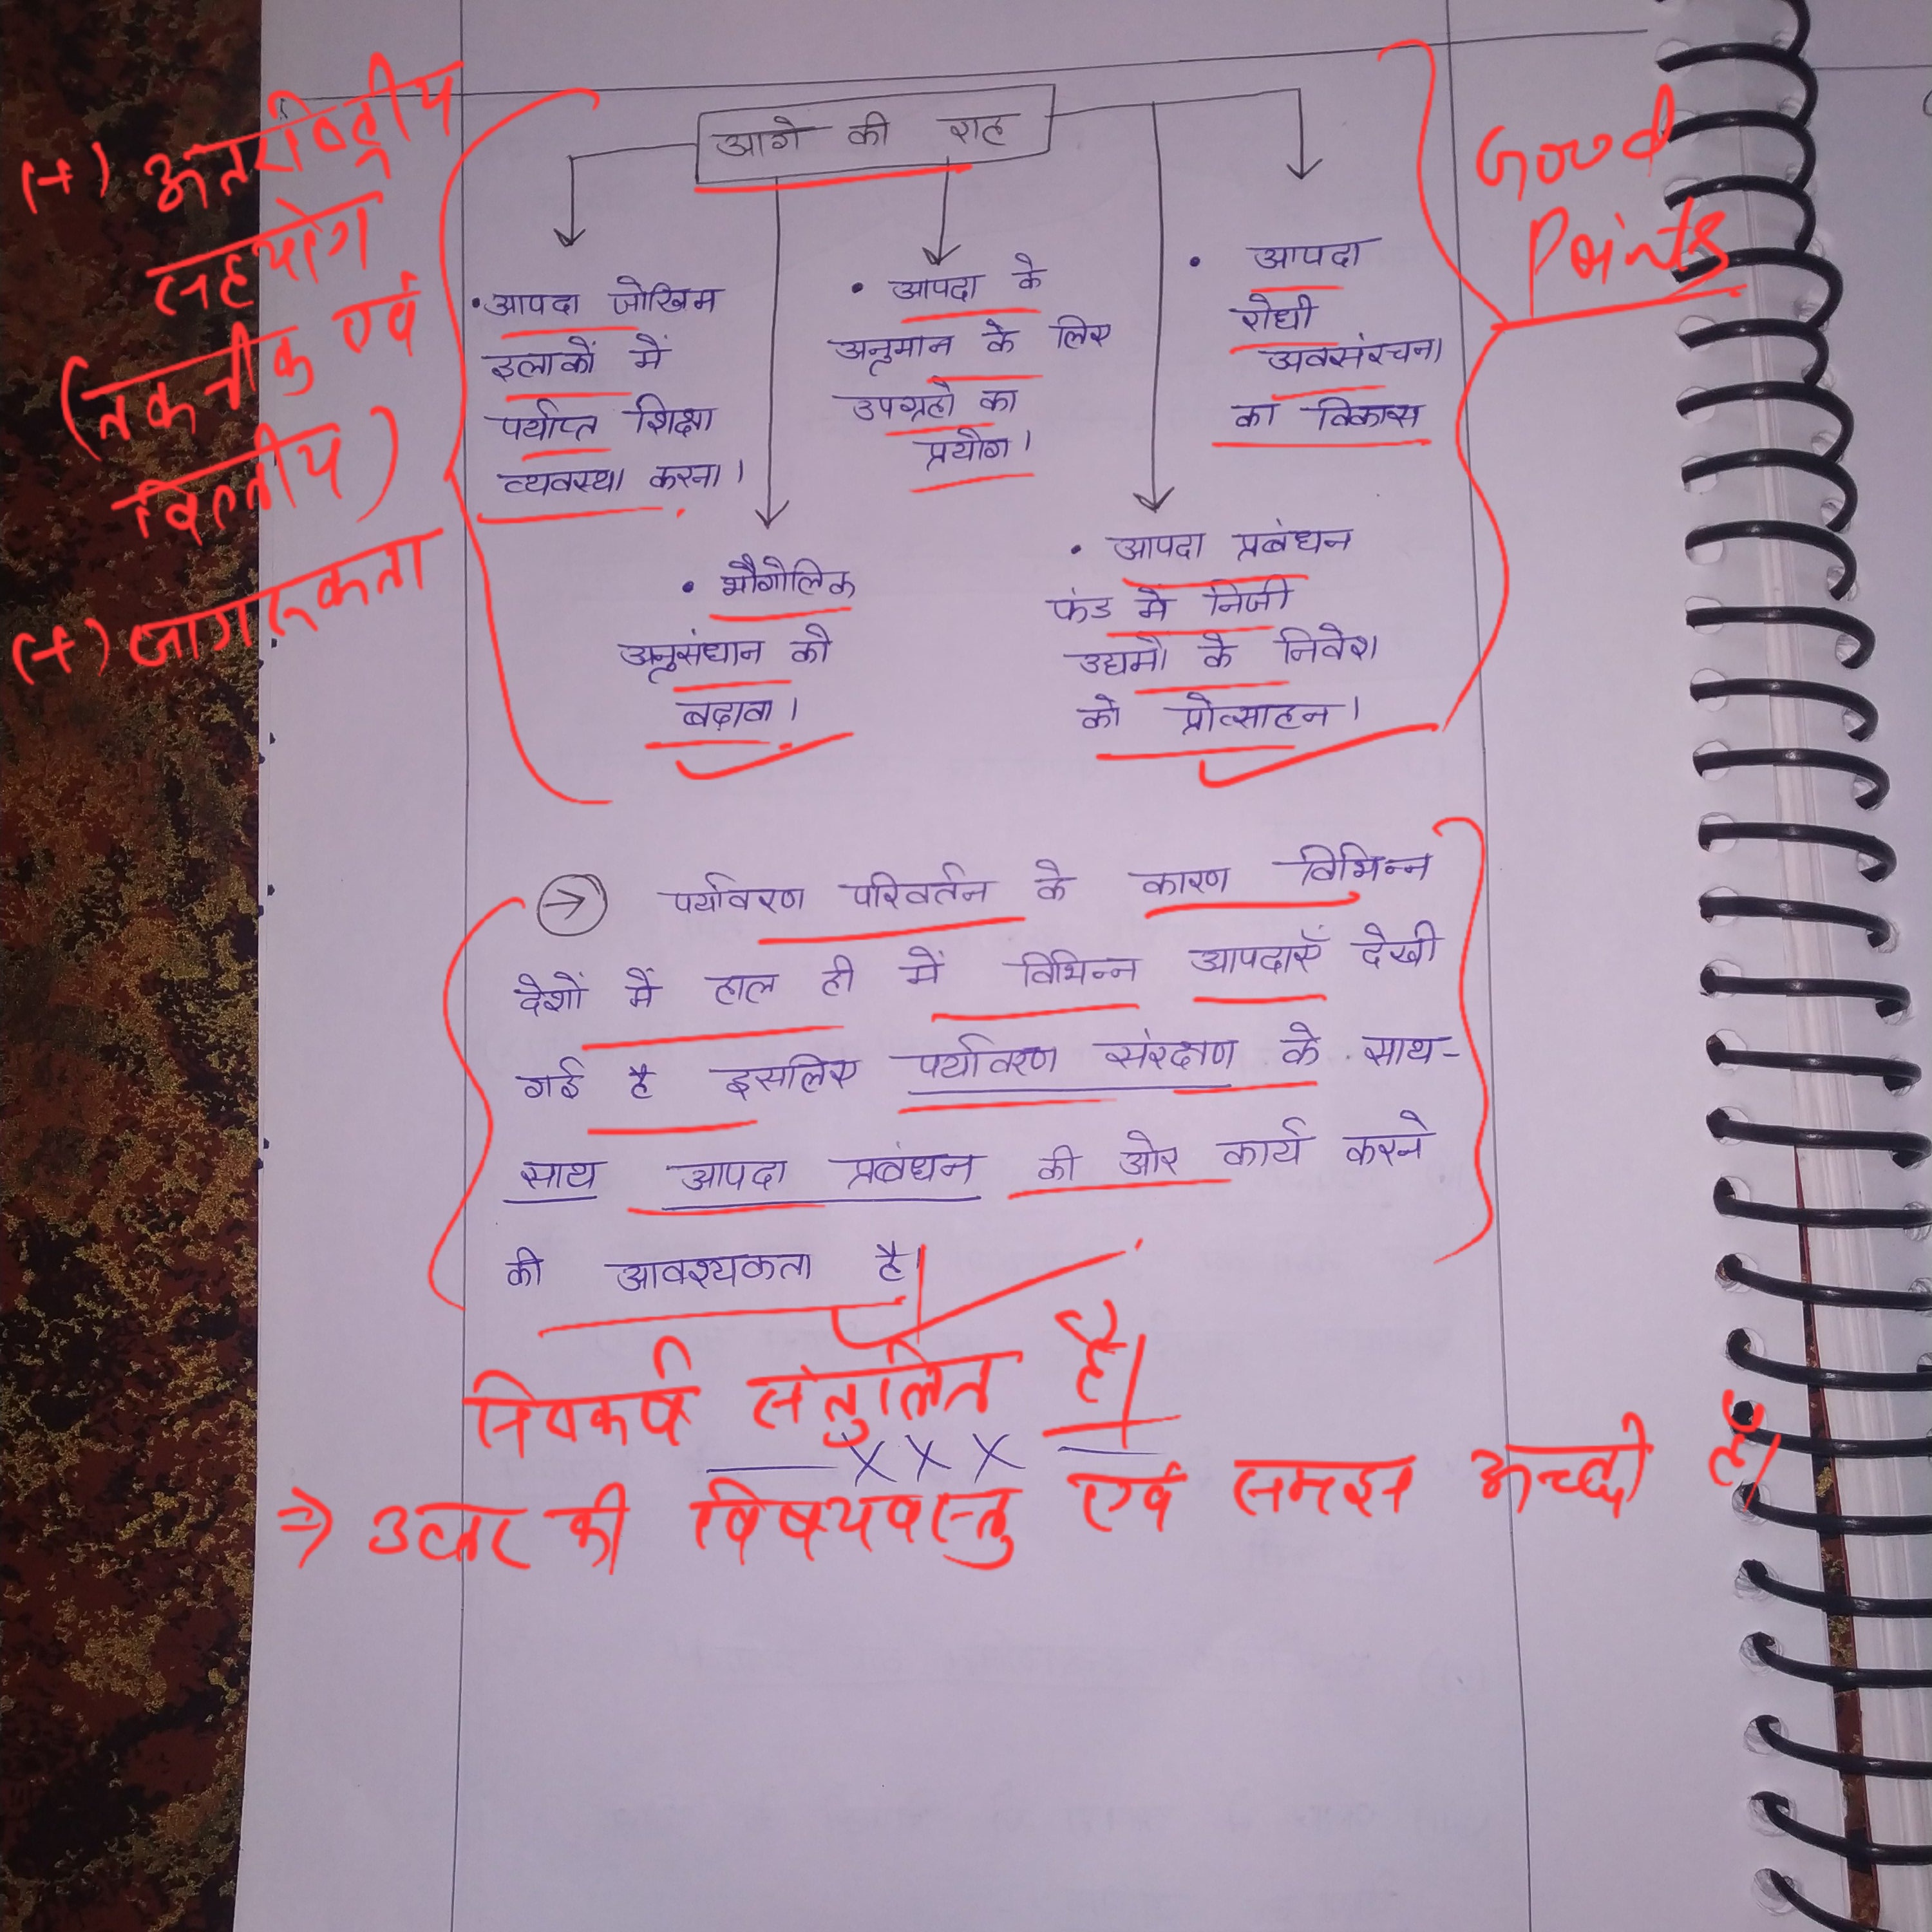 आगे की राह
(+) अन्तर्राष्ट्रीय
सहयोग
(तकनीक एवं
वित्तीय)
(+) जागरूकता
Good
Points
• आपदा जोखिम
इलाकों में
पर्याप्त शिक्षा
व्यवस्था करना।
• आपदा के
अनुमान के लिए
उपग्रहों का
प्रयोग।
• आपदा
रोधी
अवसंरचना
का विकास
• भौगोलिक
अनुसंधान को
बढ़ावा।
• आपदा प्रबंधन
फंड में निजी
उद्यमों के निवेश
को प्रोत्साहन।
→ पर्यावरण परिवर्तन के कारण विभिन्न
देशों में हाल ही में विभिन्न आपदाएँ देखी
गई है इसलिए पर्यावरण संरक्षण के साथ-
साथ आपदा प्रबंधन की ओर कार्य करने
की आवश्यकता है।
निष्कर्ष संतुलित है।
XXX
⇒ उत्तर की विषयवस्तु एवं समझ अच्छी है।